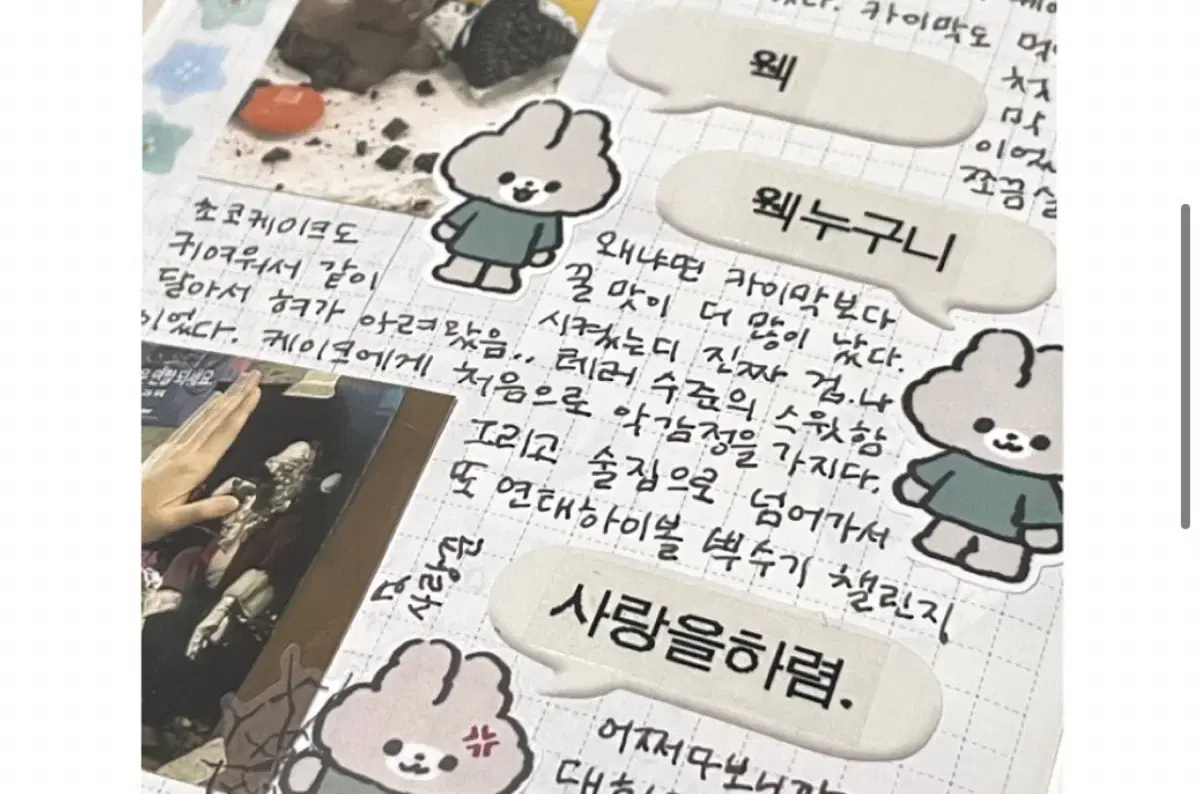 카이막도
웩
웩누구니
이었
쪼끔
초코케이크도
귀여워서 같이
달아서 혀가 아려왔음..
이었다. 케이크에게 처음으로 악감정을 가지다.
왜냐면 카이막보다
꿀 맛이 더 많이 났다.
시켰는디 진짜 겁.나
테러 수준의 스윗함
그리고 술집으로 넘어가서
또 연태하이볼 뿌수기 챌린지
사랑을하렴.
어쩌다보니까